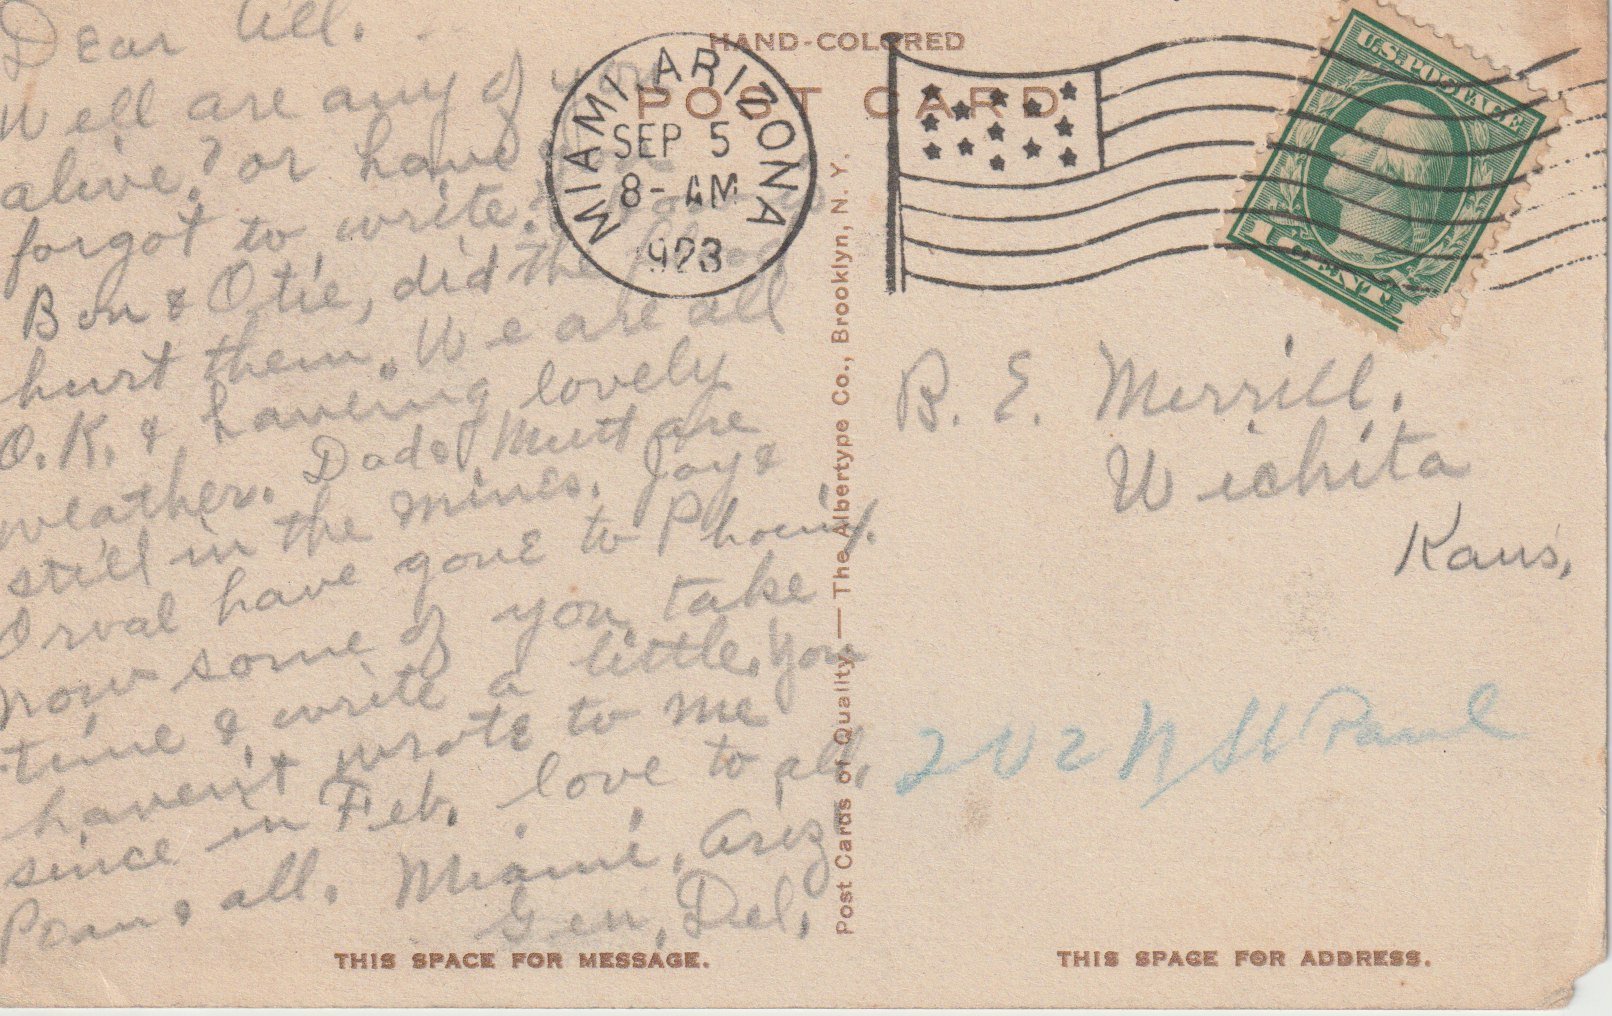 HAND-COLORED
POST CARD
MIAMI, ARIZONA
SEP 5
8-AM
1923
U.S. POSTAGE
1 CENT 1
Dear All.
Well are any of you
alive? or have you
forgot to write. How is
Ben & Otie, did the flood
hurt them. We are all
O.K. & haveing lovely
weather. Dad & Mutt are
still in the mines. Jay &
Orval have gone to Phoenix.
now some of you take
time & write a little. You
haven't wrote to me
since in Feb. love to all.
& all. Miami, Ariz
Gen, Del,
Post Cards of Quality — The Albertype Co., Brooklyn, N. Y.
B. E. Merrill.
Wichita
Kans,
202 N St Paul
THIS SPACE FOR MESSAGE.
THIS SPACE FOR ADDRESS.